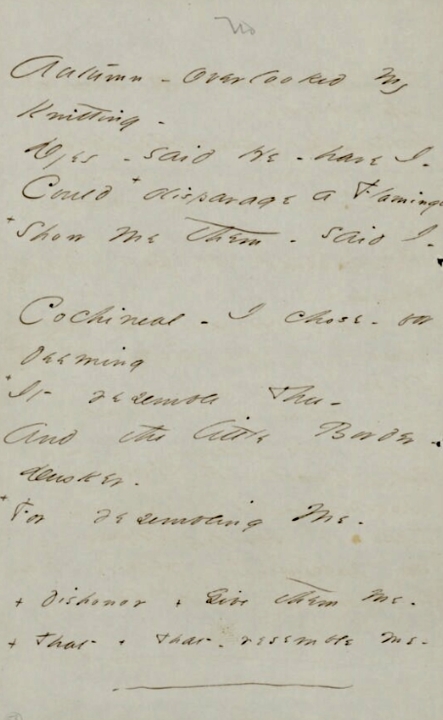 Autumn - overlooked my
Knitting -
Dyes - said He - have I -
Could + disparage a Flamingo
+ Show Me Them - said I -
Cochineal - I chose - for
deeming
+ It resemble Thee -
And the little Border -
Dusker -
+ For resembling Me -
+ Dishonor + Give Them Me -
+ That + That - resemble Me -